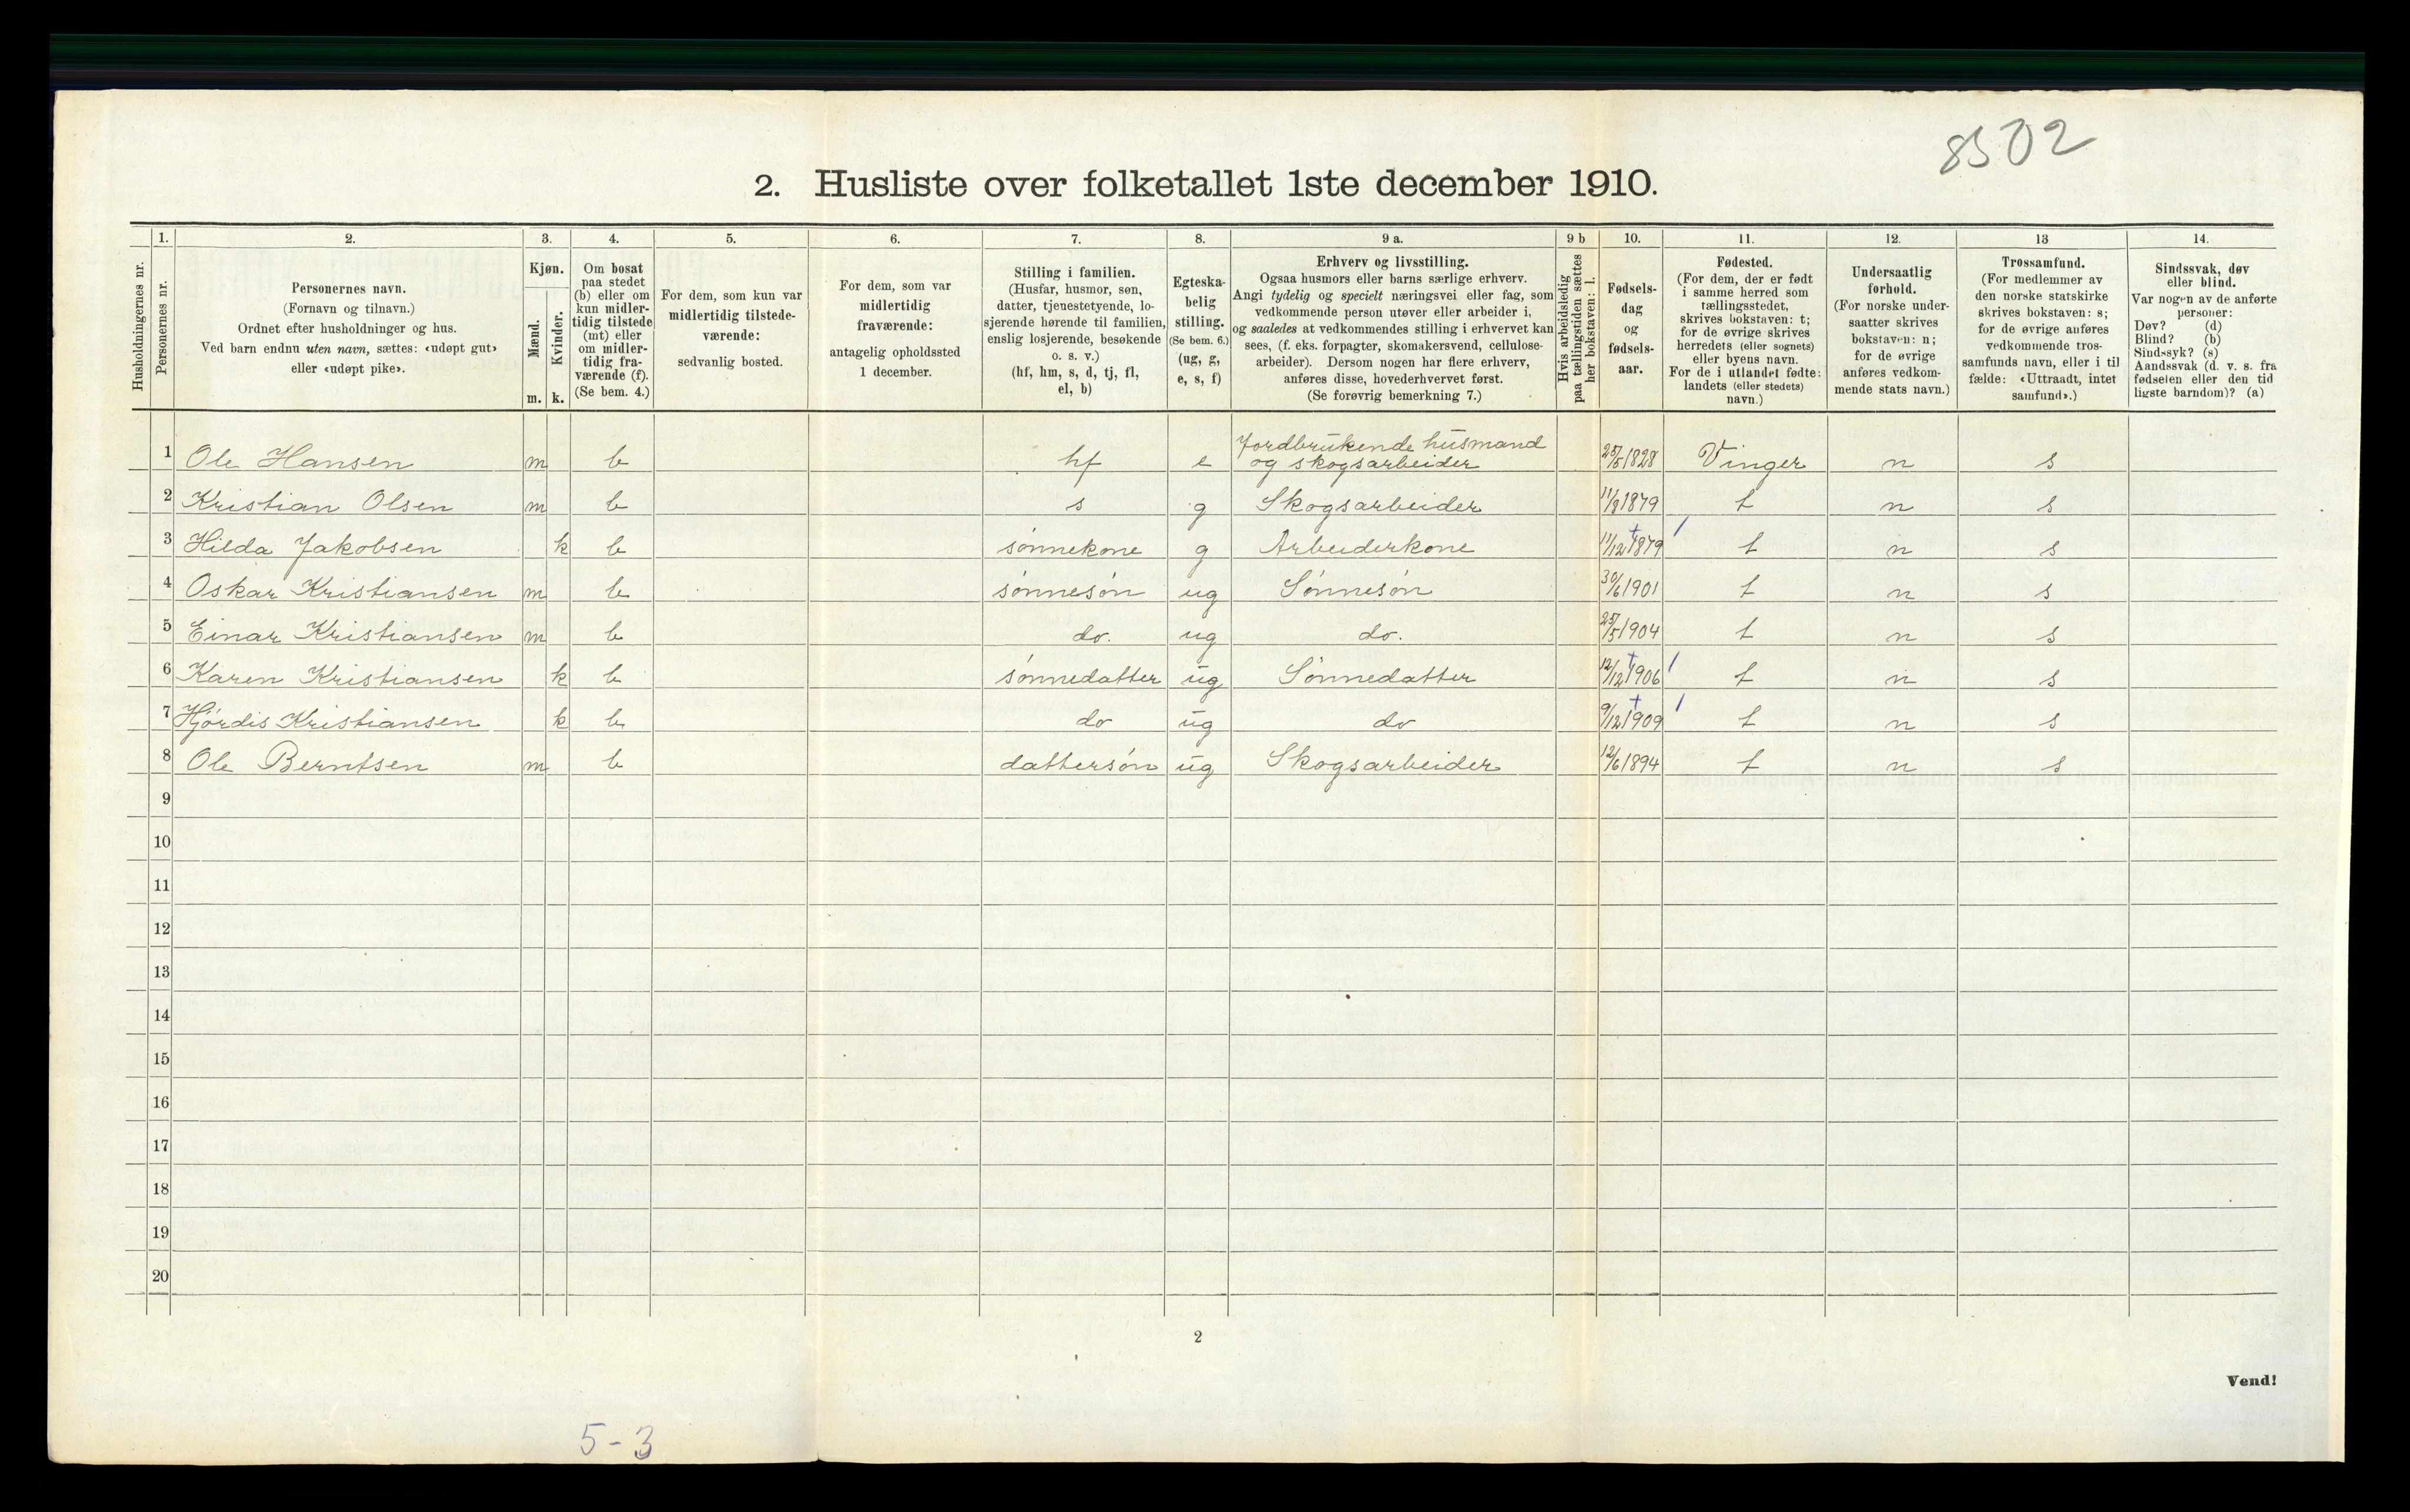 8502
2. Husliste over folketallet 1ste december 1910.
1. 2. 3. 4. 5. 6. 7. 8. 9 a. 9 b 10. 11. 12. 13 14.
Husholdningernes nr.
Personernes nr.
Personernes navn.
(Fornavn og tilnavn.)
Ordnet efter husholdninger og hus.
Ved barn endnu uten navn, sættes: «udøpt gut»
eller «udøpt pike».
Kjøn.
Mænd.
Kvinder.
m. k.
Om bosat
paa stedet
(b) eller om
kun midler-
tidig tilstede
(mt) eller
om midler-
tidig fra-
værende (f).
(Se bem. 4.)
For dem, som kun var
midlertidig tilstede-
værende:
sedvanlig bosted.
For dem, som var
midlertidig
fraværende:
antagelig opholdssted
1 december.
Stilling i familien.
(Husfar, husmor, søn,
datter, tjenestetyende, lo-
sjerende hørende til familien,
enslig losjerende, besøkende
o. s. v.)
(hf, hm, s, d, tj, fl,
el, b)
Egteska-
belig
stilling.
(Se bem. 6.)
(ug, g,
e, s, f)
Erhverv og livsstilling.
Ogsaa husmors eller barns særlige erhverv.
Angi tydelig og specielt næringsvei eller fag, som
vedkommende person utøver eller arbeider i,
og saaledes at vedkommendes stilling i erhvervet kan
sees, (f. eks. forpagter, skomakersvend, cellulose-
arbeider). Dersom nogen har flere erhverv,
anføres disse, hovederhvervet først.
(Se forøvrig bemerkning 7.)
Hvis arbeidsledig
paa tællingstiden sættes
her bokstaven: l.
Fødsels-
dag
og
fødsels-
aar.
Fødested.
(For dem, der er født
i samme herred som
tællingsstedet,
skrives bokstaven: t;
for de øvrige skrives
herredets (eller sognets)
eller byens navn.
For de i utlandet fødte:
landets (eller stedets)
navn.)
Undersaatlig
forhold.
(For norske under-
saatter skrives
bokstaven: n;
for de øvrige
anføres vedkom-
mende stats navn.)
Trossamfund.
(For medlemmer av
den norske statskirke
skrives bokstaven: s;
for de øvrige anføres
vedkommende tros-
samfunds navn, eller i til
fælde: «Uttraadt, intet
samfund».)
Sindssvak, døv
eller blind.
Var nogen av de anførte
personer:
Døv? (d)
Blind? (b)
Sindssyk? (s)
Aandssvak (d. v. s. fra
fødselen eller den tid
ligste barndom)? (a)
1 Ole Hansen m b hf e Jordbrukende husmand og skogsarbeider 25/5 1828 Vinger n s
2 Kristian Olsen m b s g Skogsarbeider 11/8 1879 t n s
3 Hilda Jakobsen k b sønnekone g Arbeiderkone 11/12 1879 t n s
4 Oskar Kristiansen m b sønnesøn ug Sønnesøn 30/6 1901 t n s
5 Einar Kristiansen m b do. ug do. 25/5 1904 t n s
6 Karen Kristiansen k b sønnedatter ug Sønnedatter 12/12 1906 t n s
7 Hjørdis Kristiansen k b do ug do 9/12 1909 t n s
8 Ole Berntsen m b dattersøn ug Skogsarbeider 12/6 1894 t n s
9
10
11
12
13
14
15
16
17
18
19
20
2
Vend!
5-3